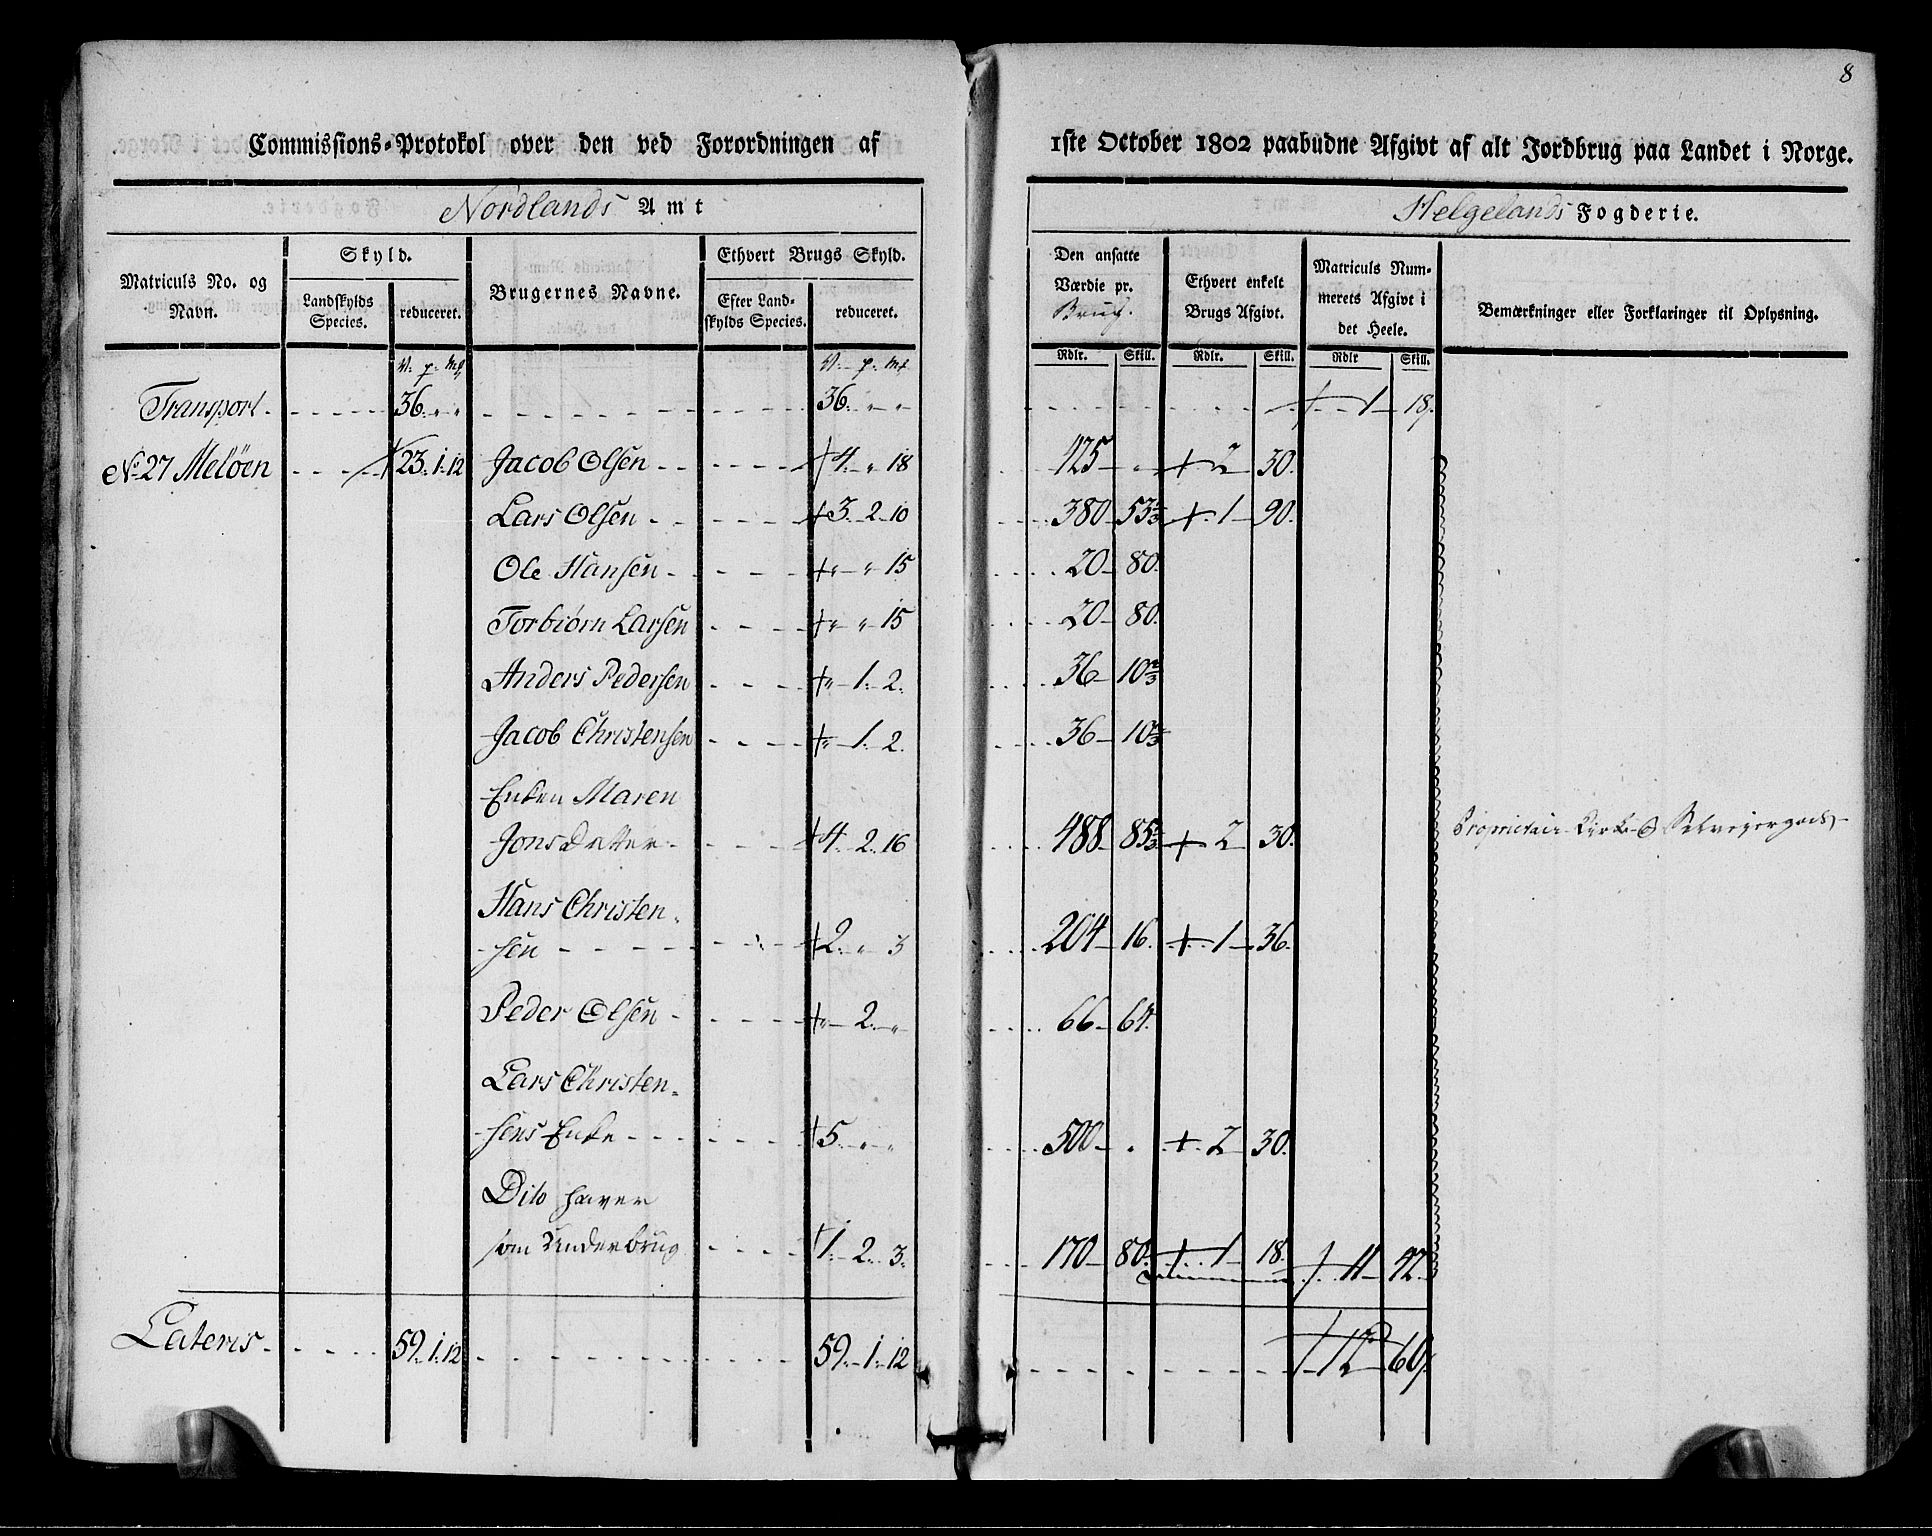 8
Commissions-Protokol over den ved Forordningen af 1ste October 1802 paabudne Afgivt af alt Jordbrug paa Landet i Norge.
Nordlands Amt
Helgelands Fogderie.
Matriculs No. og Navn.
Skyld.
Landskylds Species.
reduceret.
Brugernes Navne.
Ethvert Brugs Skyld.
Efter Landskylds Species.
reduceret.
Den ansatte Værdie pr. Brug.
Ethvert enkelt Brugs Afgivt.
Matriculs Nummerets Afgivt i det Heele.
Bemærkninger eller Forklaringer til Oplysning.
V. p. mk V. p. mk Rdlr. Skill. Rdlr. Skill. Rdlr Skill.
Transport 36. " " 36. " " 1 18.
No 27 Meløen 23. 1. 12 Jacob Olsen 4. " 18 425 " 2 30.
Lars Olsen 3. 2. 10 380 53 1/3 1 90.
Ole Hansen " " 15 20 80.
Torbiørn Larsen " " 15 20 80.
Anders Pedersen " 1. 2. 36 10 2/3
Jacob Christensen " 1. 2. 36 10 2/3
Enken Maren
Jonsdatter 4. 2. 16 488 85 1/3 2 30. Proprietair Kirke & Selveyergods
Hans Christen-
sen 2. " 3 204 16. 1 36.
Peder Olsen " 2. " 66 64.
Lars Christen-
sens Enke 5. " " 500 . 2 30.
Dito haver
som Underbrug 1. 2. 3. 170 80. 1 18. 11 42.
Lateris 59. 1. 12 59. 1. 12 12 60.